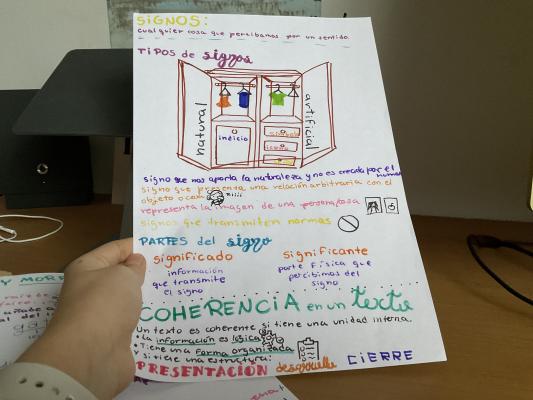 SIGNOS:
cualquier cosa que percibamos por un sentido.
TIPOS de signos
natural
artificial
indicio
símbolo
icono
signo que nos aporta la naturaleza y no es creada por el humano
signo que presenta una relación arbitraria con el
objeto o cosa
representa la imagen de una persona/cosa
signos que transmiten normas
PARTES del signo
significado
significante
información
que transmite
el signo
parte física que
percibimos del
signo
COHERENCIA en un texto
Un texto es coherente si tiene una unidad interna.
• La información es lógica
• Tiene una forma organizada
y sigue una estructura:
PRESENTACIÓN desarrollo CIERRE